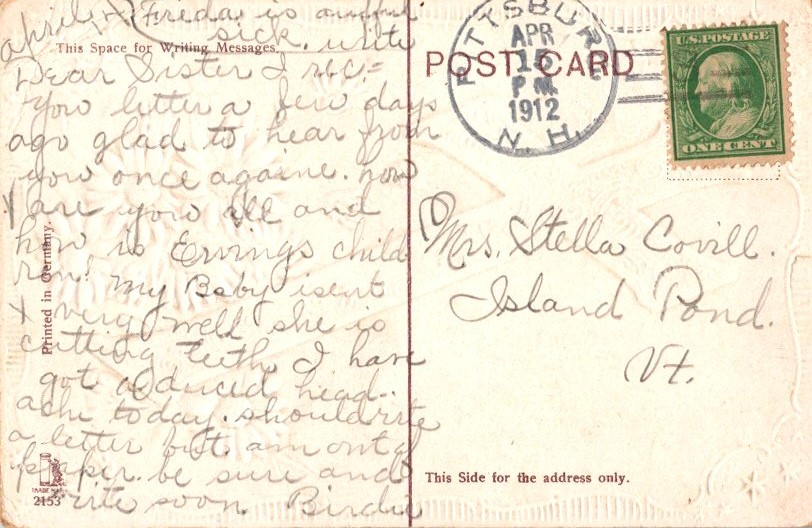 april Freda is awful
sick. write
This Space for Writing Messages.
Dear Sister I rec=
you letter a few days
ago glad to hear from
you once againe. how
are you all and
how is Ervings child
ren! my Baby isent
very well she is
cutting teeth. I have
got a duced head-
ache today. shouldrite
a letter but am out of
paper. be sure and
rite soon Birdie
Printed in Germany.
TRADE MARK
2153
POST CARD
PITTSBURG
APR
15
P M
1912
N. H.
U.S. POSTAGE
ONE CENT
Mrs. Stella Covill.
Island Pond.
Vt.
This Side for the address only.